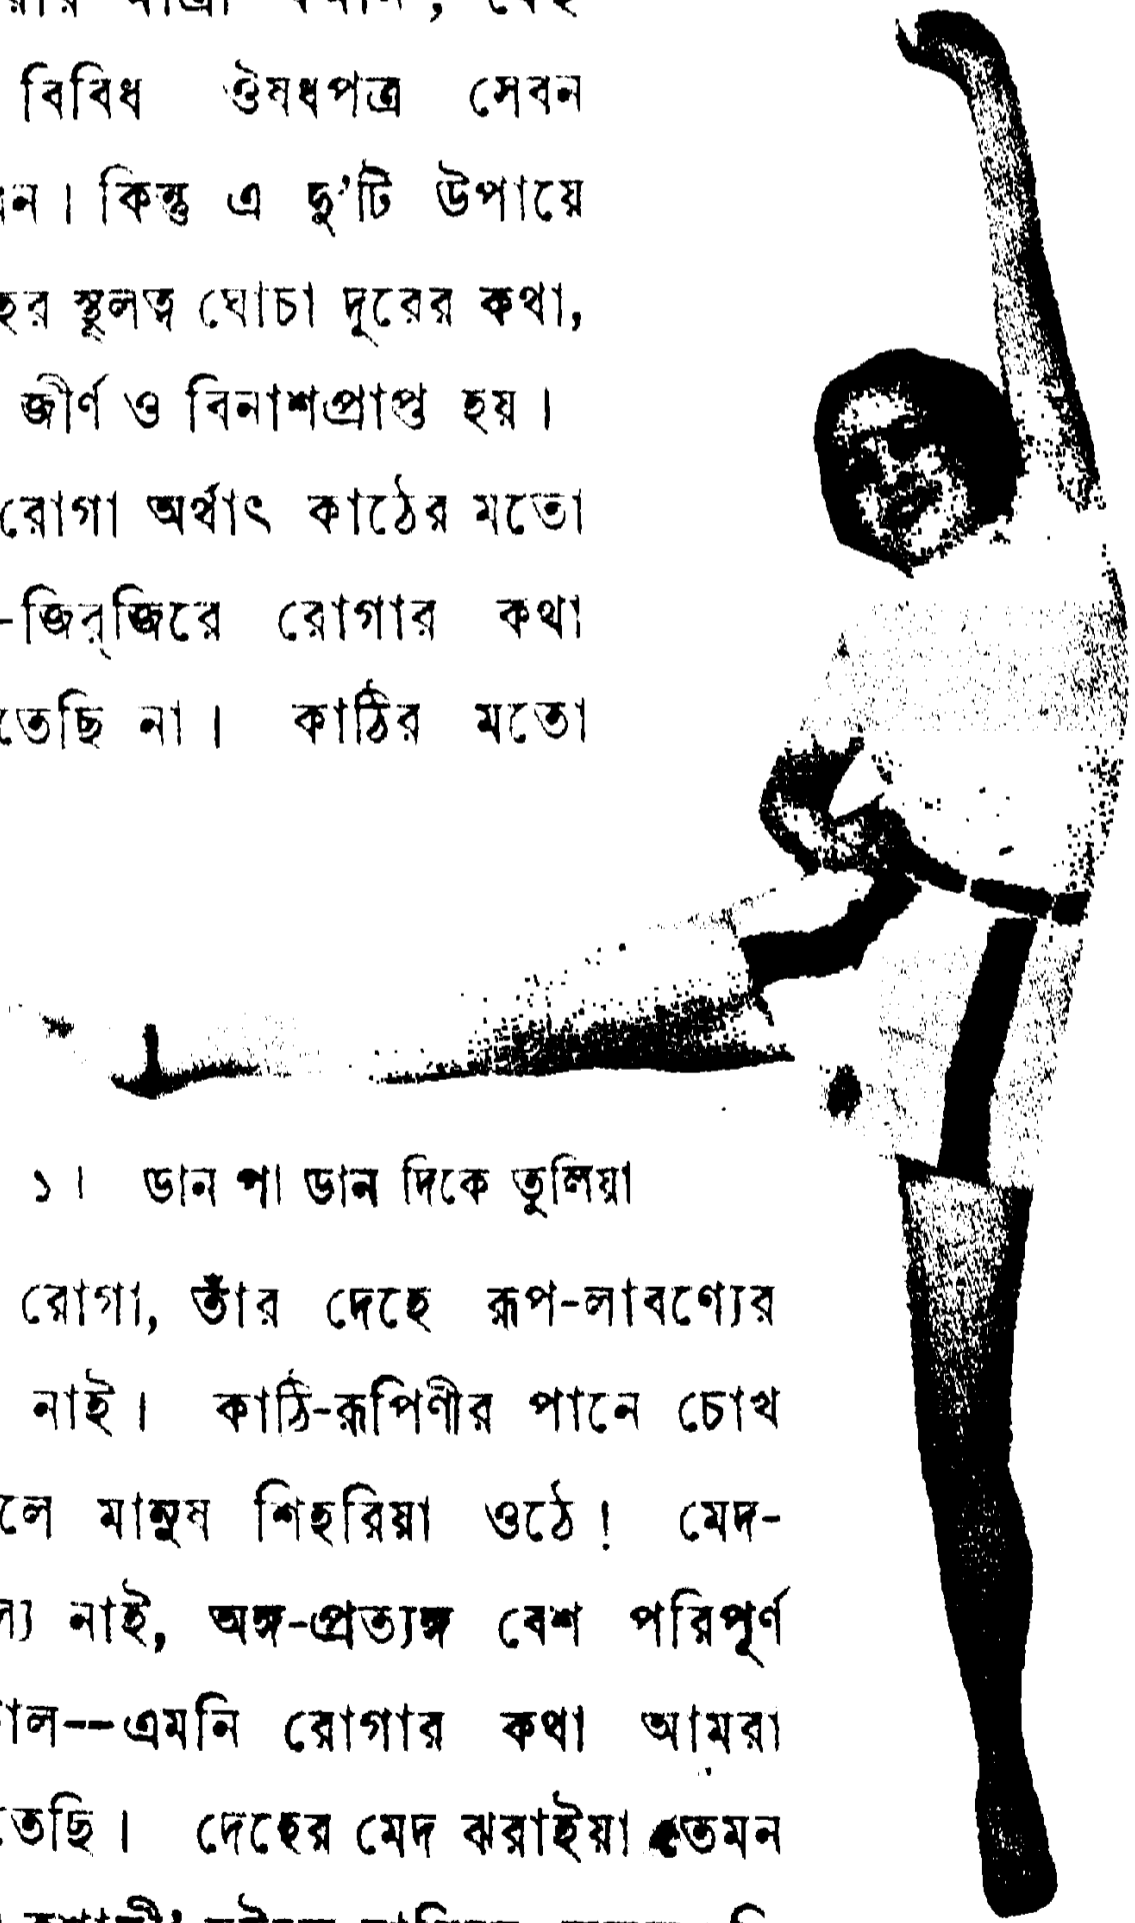 বিবিধ ঔষধপত্র সেবন
ন। কিন্তু এ দু'টি উপায়ে
হর স্থূলত্ব ঘোচা দূরের কথা,
জীর্ণ ও বিনাশপ্রাপ্ত হয়।
রোগা অর্থাৎ কাঠের মতো
-জির্‌জিরে রোগার কথা
তেছি না। কাঠির মতো
১। ডান পা ডান দিকে তুলিয়া
রোগা, তাঁর দেহে রূপ-লাবণ্যের
নাই। কাঠি-রূপিণীর পানে চোখ
লে মানুষ শিহরিয়া ওঠে! মেদ-
ল্য নাই, অঙ্গ-প্রত্যঙ্গ বেশ পরিপূর্ণ
াল--এমনি রোগার কথা আমরা
তেছি। দেহের মেদ ঝরাইয়া তেমন